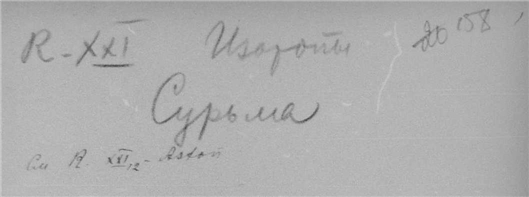 R-XXI Изотопы № 158
Сурьма
См R. XXI₁₂- Aston